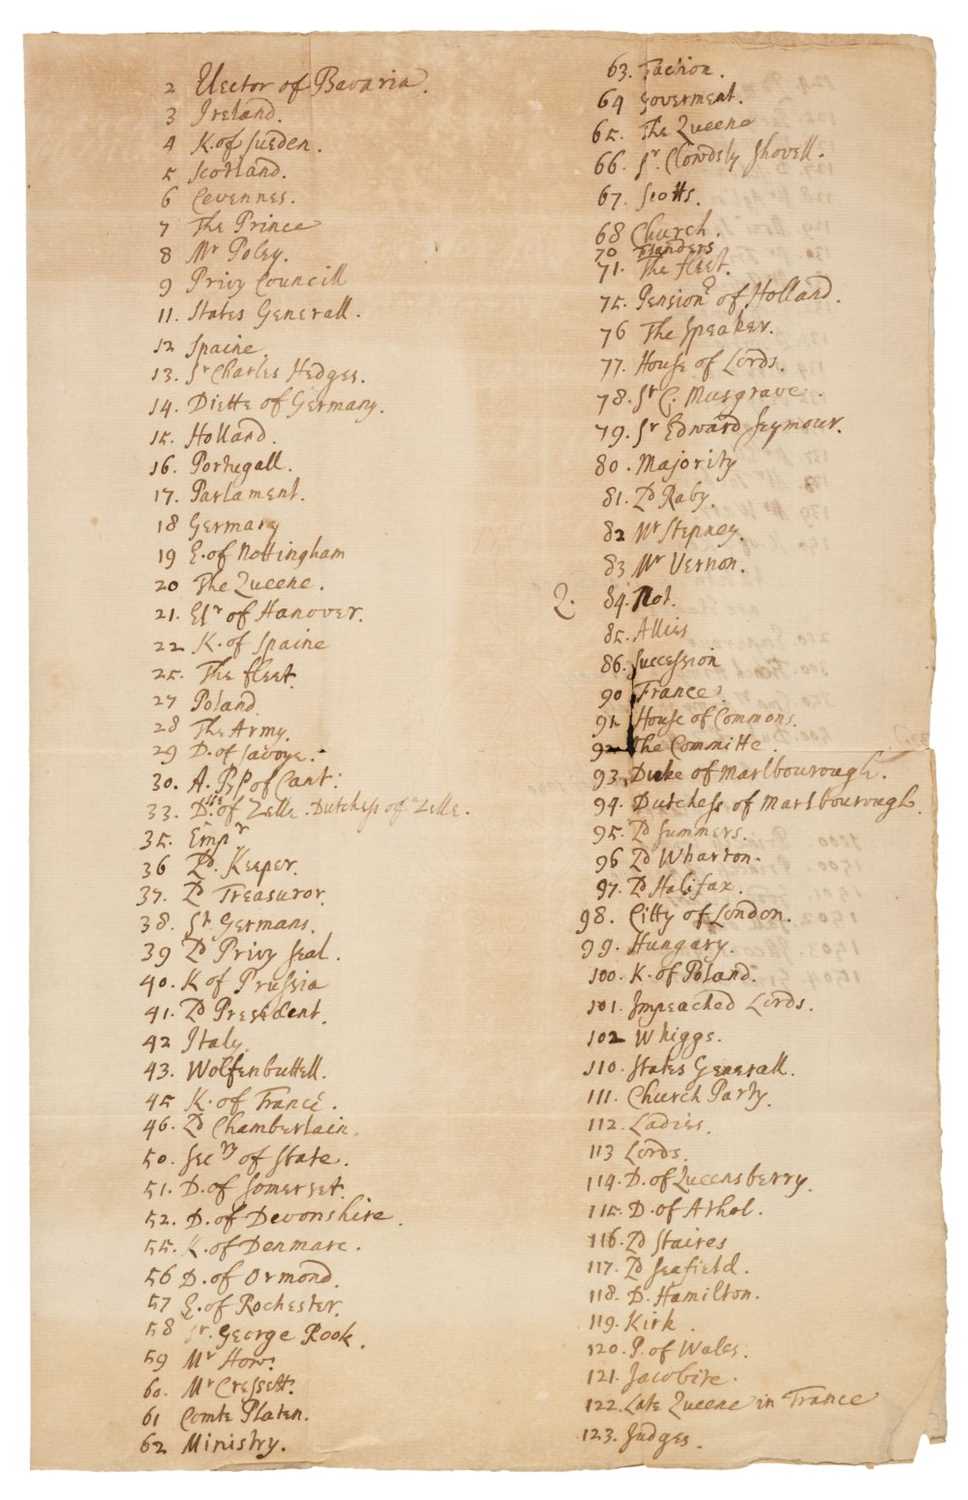 2 Elector of Bavaria.
3 Ireland.
4 K. of Sueden.
5 Scotland.
6 Cevennes.
7 The Prince
8 Mr Poley.
9 Privy Councill
11. States Generall.
12 Spaine.
13. Sr Charles Hedges.
14. Diette of Germany.
15. Holland.
16. Portugall.
17. Parlament.
18 Germany
19 E. of Nottingham
20 The Queene.
21. Elr of Hanover.
22 K. of Spaine
25. The fleet.
27 Poland
28 The Army.
29 D. of Savoye.
30. A. BP of Cant:
33. Dss of Zelle. Dutchess of Zelle.
35. Empr
36 Ld. Keeper.
37. Ld Treasuror.
38. St. Germans.
39 Ld Privy Seal.
40. K of Prussia
41. Ld President.
42 Italy.
43. Wolfenbuttell.
45 K. of France.
46. Ld Chamberlain.
50. Secry of State.
51. D. of Somerset.
52. D. of Devonshire.
55. K. of Denmarc.
56 D. of Ormond.
57 E. of Rochester.
58 Sr. George Rook.
59 Mr How.
60. Mr Cressett.
61 Comte Platen.
62 Ministry.
63. Faction.
64 Goverment.
65. The Queene
66. Sr. Clowdsly Shovell.
67. Scotts.
68 Church.
70 Flanders
71. The fleet.
75. Pensione of Holland.
76 The Speaker.
77. House of Lords.
78. Sr C. Musgrave.
79. Sr Edward Seymour.
80. Majority
81. Ld Raby.
82 Mr Stepney.
83 Mr Vernon.
2. 84. Not.
85. Allies
86. Succession
90 France.
91 House of Commons.
92 The Committe.
93. Duke of Marlbourough.
94. Dutchess of Marlbourough.
95. Ld Summers.
96 Ld Wharton.
97. Ld Halifax.
98. Citty of London.
99. Hungary.
100. K. of Poland.
101. Impeached Lords.
102 Whiggs.
110. States Generall.
111. Church Party.
112. Ladies.
113 Lords.
114. D. of Queensberry.
115. D. of Athol.
116. Ld Staires
117. Ld Seafield.
118. D. Hamilton.
119. Kirk.
120. P. of Wales.
121. Jacobite.
122. Late Queene in France
123. Judges.